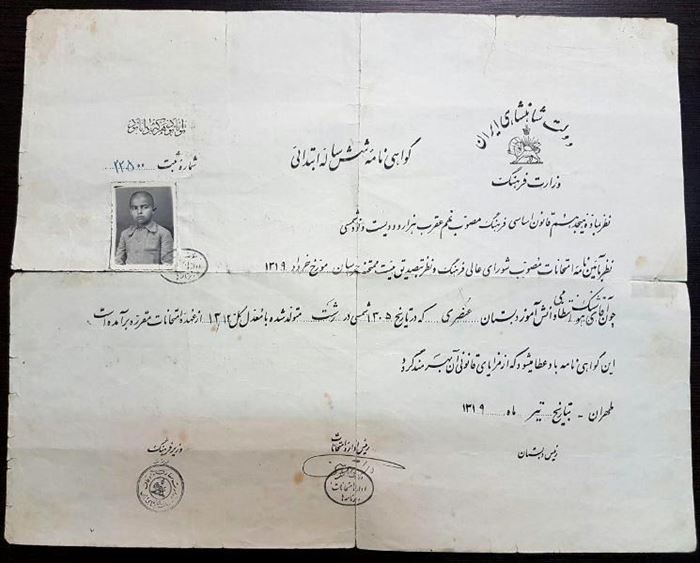 دولت شاهنشاهی ایران
وزارت فرهنگ
گواهی نامه شش ساله ابتدائی
توانا بود هر که دانا بود
شماره ثبت ۲۲۵۰۰
نظر بماده هیجدهم قانون اساسی فرهنگ مصوب نهم عقرب هزار و دویست و نود شمسی
نظر بآئین نامه امتحانات مصوب شورای عالی فرهنگ و نظر بتصدیق هیئت ممتحنه مورخ خرداد ۱۳۱۹
چون آقای هوشنگ دانش آموز دبستان عنصری که در تاریخ ۱۳۰۵ شمسی در رشت متولد شده با معدل کل از عهده امتحانات مقرره برآمده است
این گواهی نامه باو عطا میشود که از مزایای قانونی آن بهره مند گردد
طهران - بتاریخ تیر ماه ۱۳۱۹
رئیس دبستان
رئیس اداره امتحانات
وزیر فرهنگ